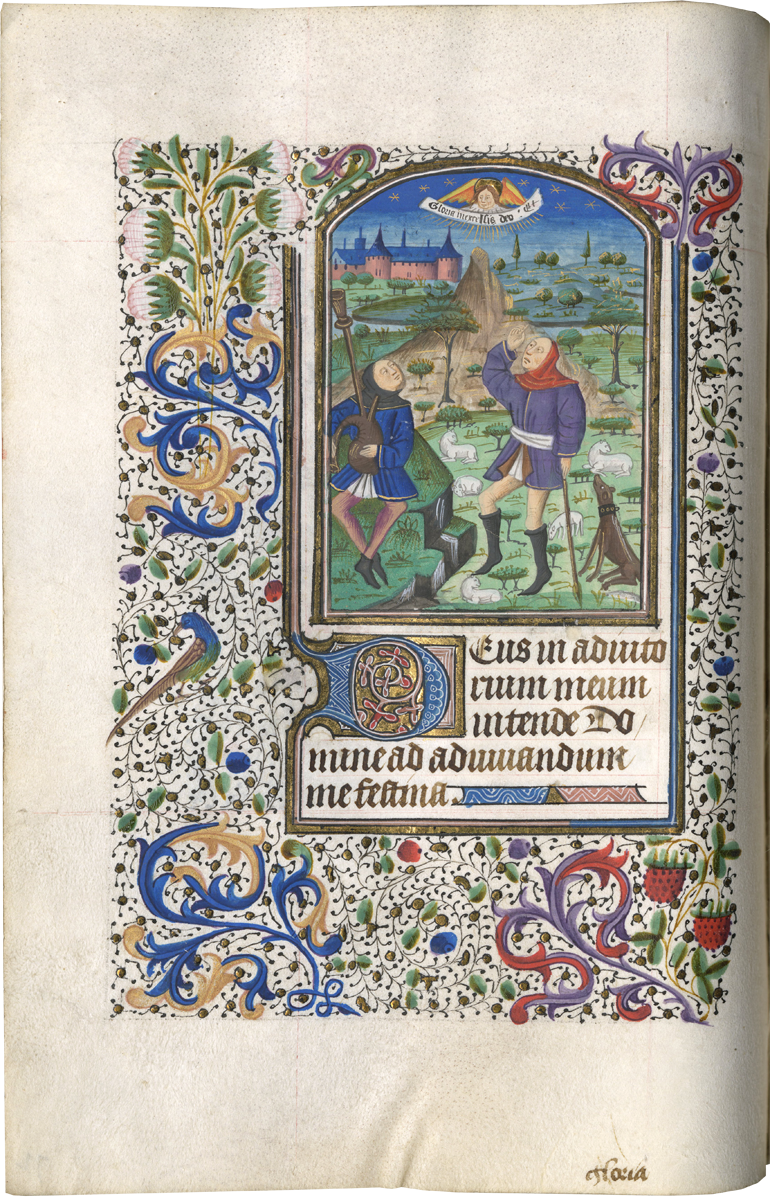 Gloria in excelsis deo : Et
Deus in adiuto
rium meum
intende Do
mine ad adiuuandum
me festina.
Gloria